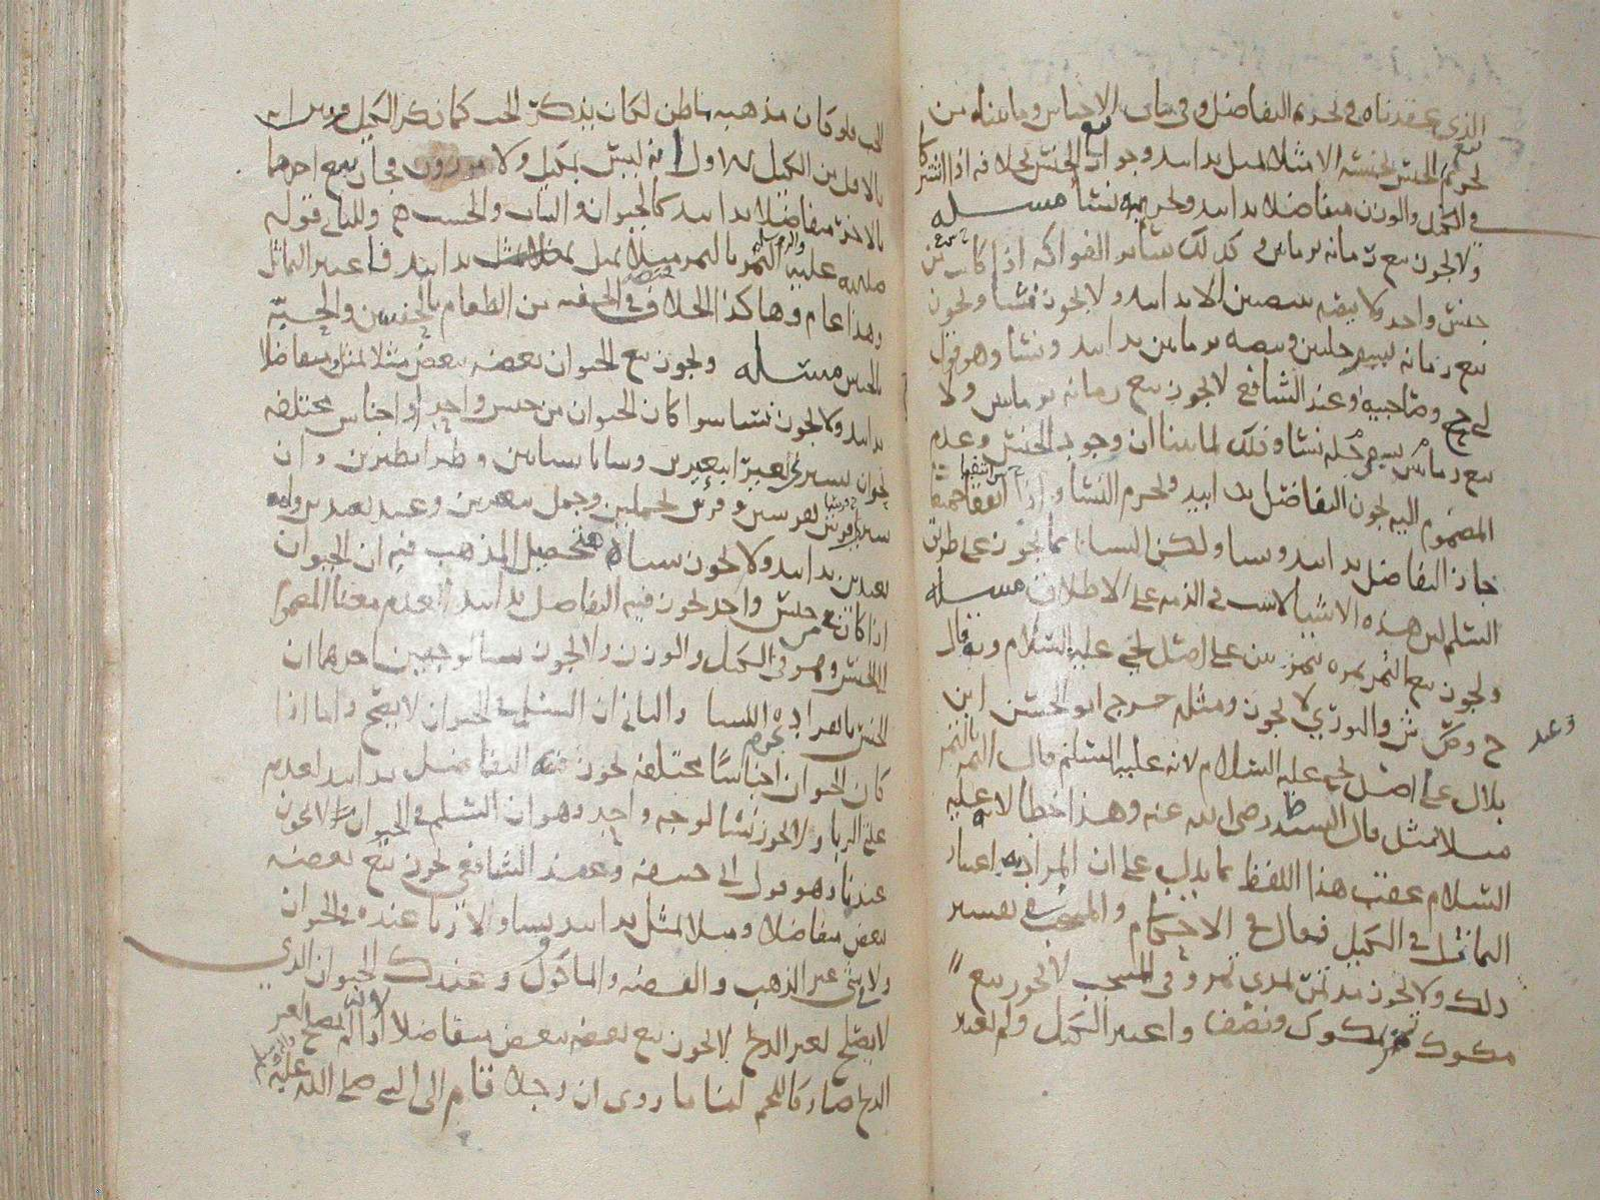 الذي عقدناه في تحريم التفاضل وفي باب الاجناس وما بيناه من
تحريم بيع الجنس بجنسه الا مثلا بمثل يدا بيد وجواز بيع الجنس بخلافه اذا اشتركا
في الكيل والوزن متفاضلا يدا بيد وتحريمه نسا مسله
ولا يجوز بيع رمانه برمانتين وكذلك سائر الفواكه اذا كانت من
جنس واحد ولا بيضه ببيضتين الا يدا بيد ولا يجوز نسا ويجوز
بيع رمانه بسفرجلتين وبيضه برمانتين يدا بيد ونسا وهو قول
ابي ح وصاحبيه وعند الشافعي لا يجوز بيع رمانه برمانتين ولا
بيع رمانتين بسفرجله نسا وذلك لما بينا ان وجود الجنس وعدم
المضموم اليه يجوز التفاضل يدا بيد ويحرم النسا واذا
جاز التفاضل يدا بيد ونسا ولكن النسا انما يجوز على طريق
السلم لان هذه الاشيا لا تثبت في الذمه على الاطلاق مسله
ويجوز بيع التمر تمره بتمرتين على اصل يحيى عليه السلام وبه قال
ح وص ش والثوري لا يجوز ومثله خرج ابو الحسن ابن
وعند
بلال على اصل يحيى عليه السلام لانه عليه السلم قال التمر بالتمر
مثلا بمثل قال السيد ط رضي الله عنه وهذا خطا لانه عليه
السلام عقب هذا اللفظ بما يدل على ان المراد به اعتبار
التماثل في الكيل فقال في الاحكام والمنتخب في تفسير
ذلك ولا يجوز مد تمر بمدي تمر وفي المنتخب لا يجوز بيع
مكوك تمر بمكوك ونصف واعتبر الكيل ولم يعتبر
الحب فلو كان مذهبه باطن لكان يذكر الحب كما ذكر الكيل
بالاقل من الكيل له اول انه ليس بمكيل ولا موزون فجاز بيع احدهما
بالاخر متفاضلا يدا بيد كالحيوان والثياب والخشب ح وللثاني قوله
عليه التمر بالتمر مثلا بمثل يدا بيد فاعتبر التماثل
وهذا عام وهاكذا الخلاف في الحفنه من الطعام بالحفنتين والحبه
بالحبتين مسله ويجوز بيع الحيوان بعضه ببعض مثلا بمثل ومتفاضلا
يدا بيد ولا يجوز نسا سوا كان الحيوان من جنس واحد او اجناس مختلفه
يجوز ان يشتري بعيرا ببعيرين وشاتا بشاتين وطيرا بطيرين وان
يشتري فرس بفرسين وفرس بجملين وجمل ببعيرين وعبد بعبدين وامه
بعبدين يدا بيد ولا يجوز نساه هذا تحصيل المذهب فيه ان الحيوان
اذا كان من جنس واحد يجوز فيه التفاضل يدا بيد لعدم معنا المضموم
الى الجنس وهو الكيل والوزن ولا يجوز نسا لوجهين احدهما ان
الجنس بانفراده يحرم النسا والثاني ان السلم في الحيوان لا يصح واما اذا
كان الحيوان اجناسا مختلفه يجوز فيه التفاضل يدا بيد لعدم
علة الربا ولا يجوز نسا لوجه واحد وهو ان السلم في الحيوان لا يجوز
عندنا وهو قول ابي حنيفه وعند الشافعي يجوز بيع بعضه
ببعض متفاضلا ومثلا بمثل يدا بيد ونسا ولا ربا عنده في الحيوان
ولا في شي غير الذهب والفضه والماكول وعند ك الحيوان الذي
لا يصلح لغير الذبح لا يجوز بيع بعضه ببعض متفاضلا لانه اذا لم يصلح لغير
الذبح صار كاللحم لنا ما روى ان رجلا قام الى النبي صلى الله عليه